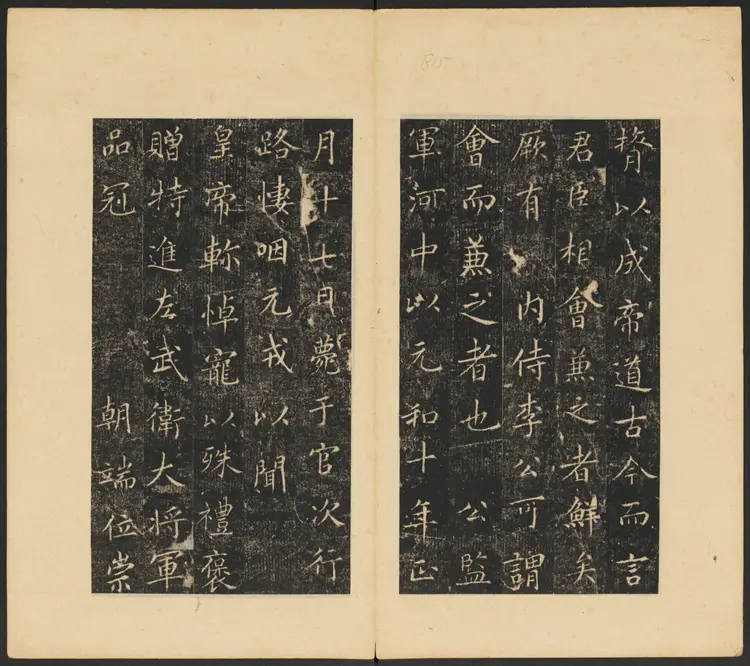 膂以成帝道古今而言
君臣相會兼之者鮮矣
厥有 内侍李公可謂
會而兼之者也 公監
軍河中以元和十年正
月十七日薨于官次行
路悽咽元戎以聞
皇帝軫悼寵以殊禮褒
贈特進左武衛大將軍
品冠 朝端位崇